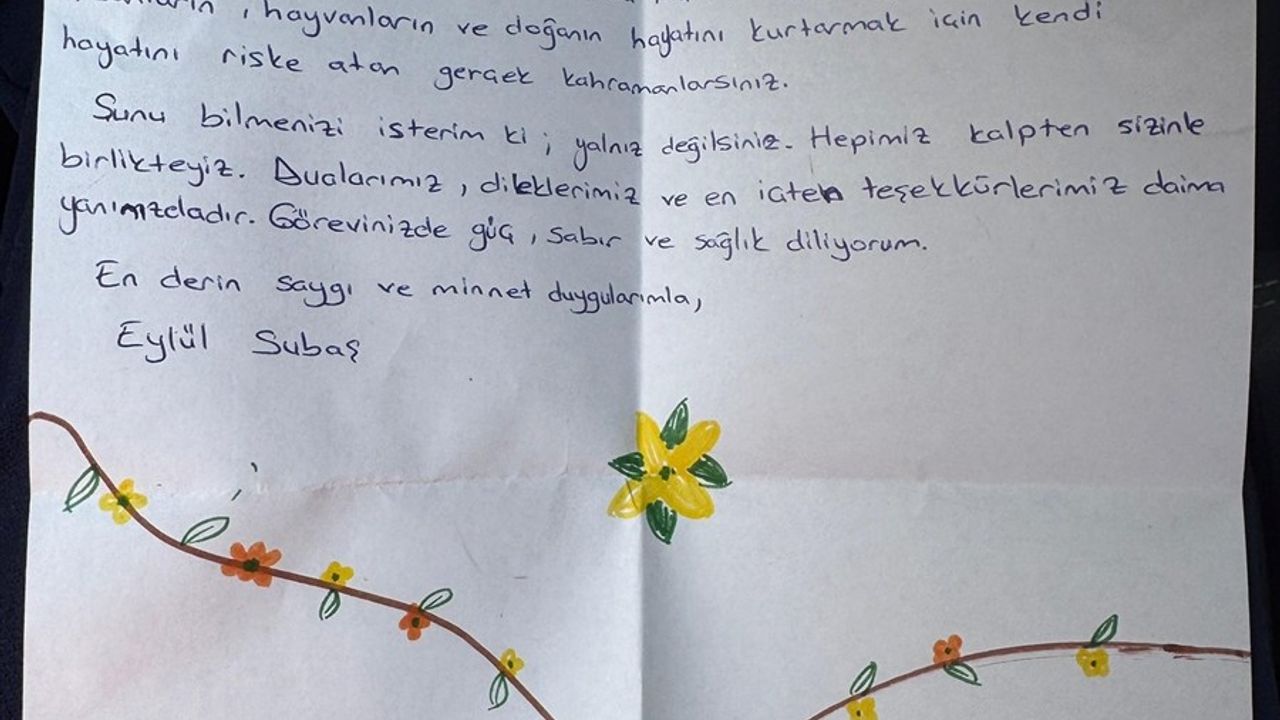 , hayvanların ve doğanın hayatını kurtarmak için kendi
hayatını riske atan gerçek kahramanlarsınız.
Sunu bilmenizi isterim ki ; yalnız değilsiniz. Hepimiz kalpten sizinle
birlikteyiz. Dualarımız , dileklerimiz ve en içten teşekkürlerimiz daima
yanımızdadır. Görevinizde güç , sabır ve sağlık diliyorum.
En derin saygı ve minnet duygularımla,
Eylül Subaş